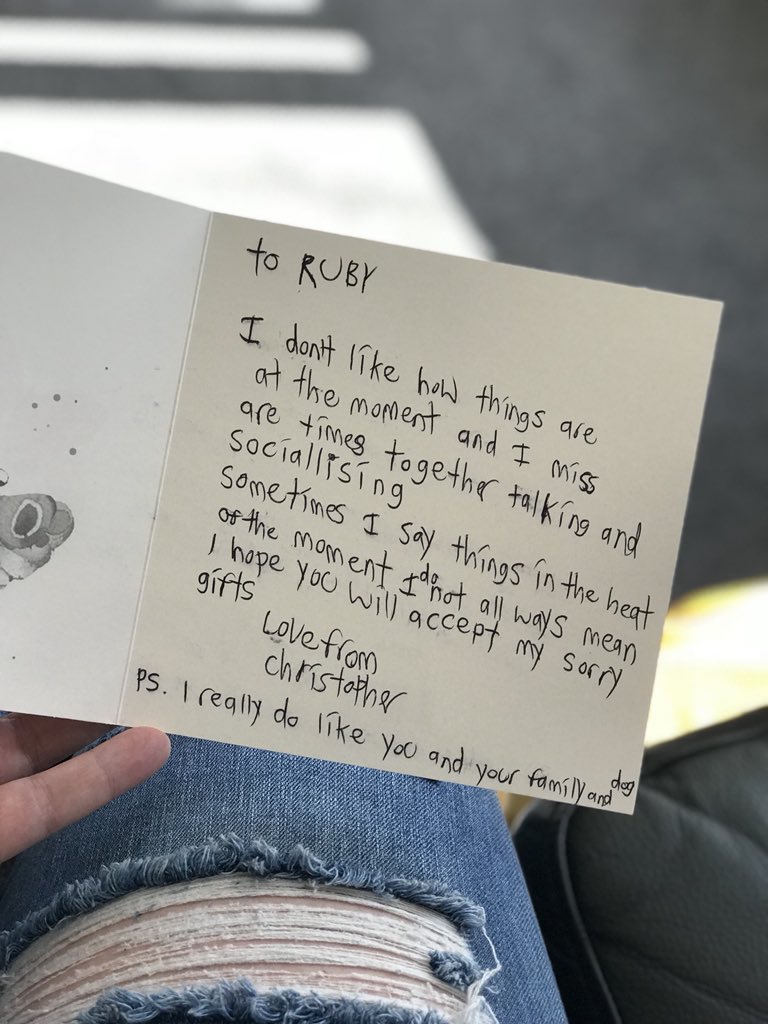 to RUBY
I dont like how things are
at the moment and I miss
are times together talking and
sociallising
sometimes I say things in the heat
of the moment I do not all ways mean
I hope you will accept my sorry
gifts
Love from
christopher
PS. I really do like you and your family and dog